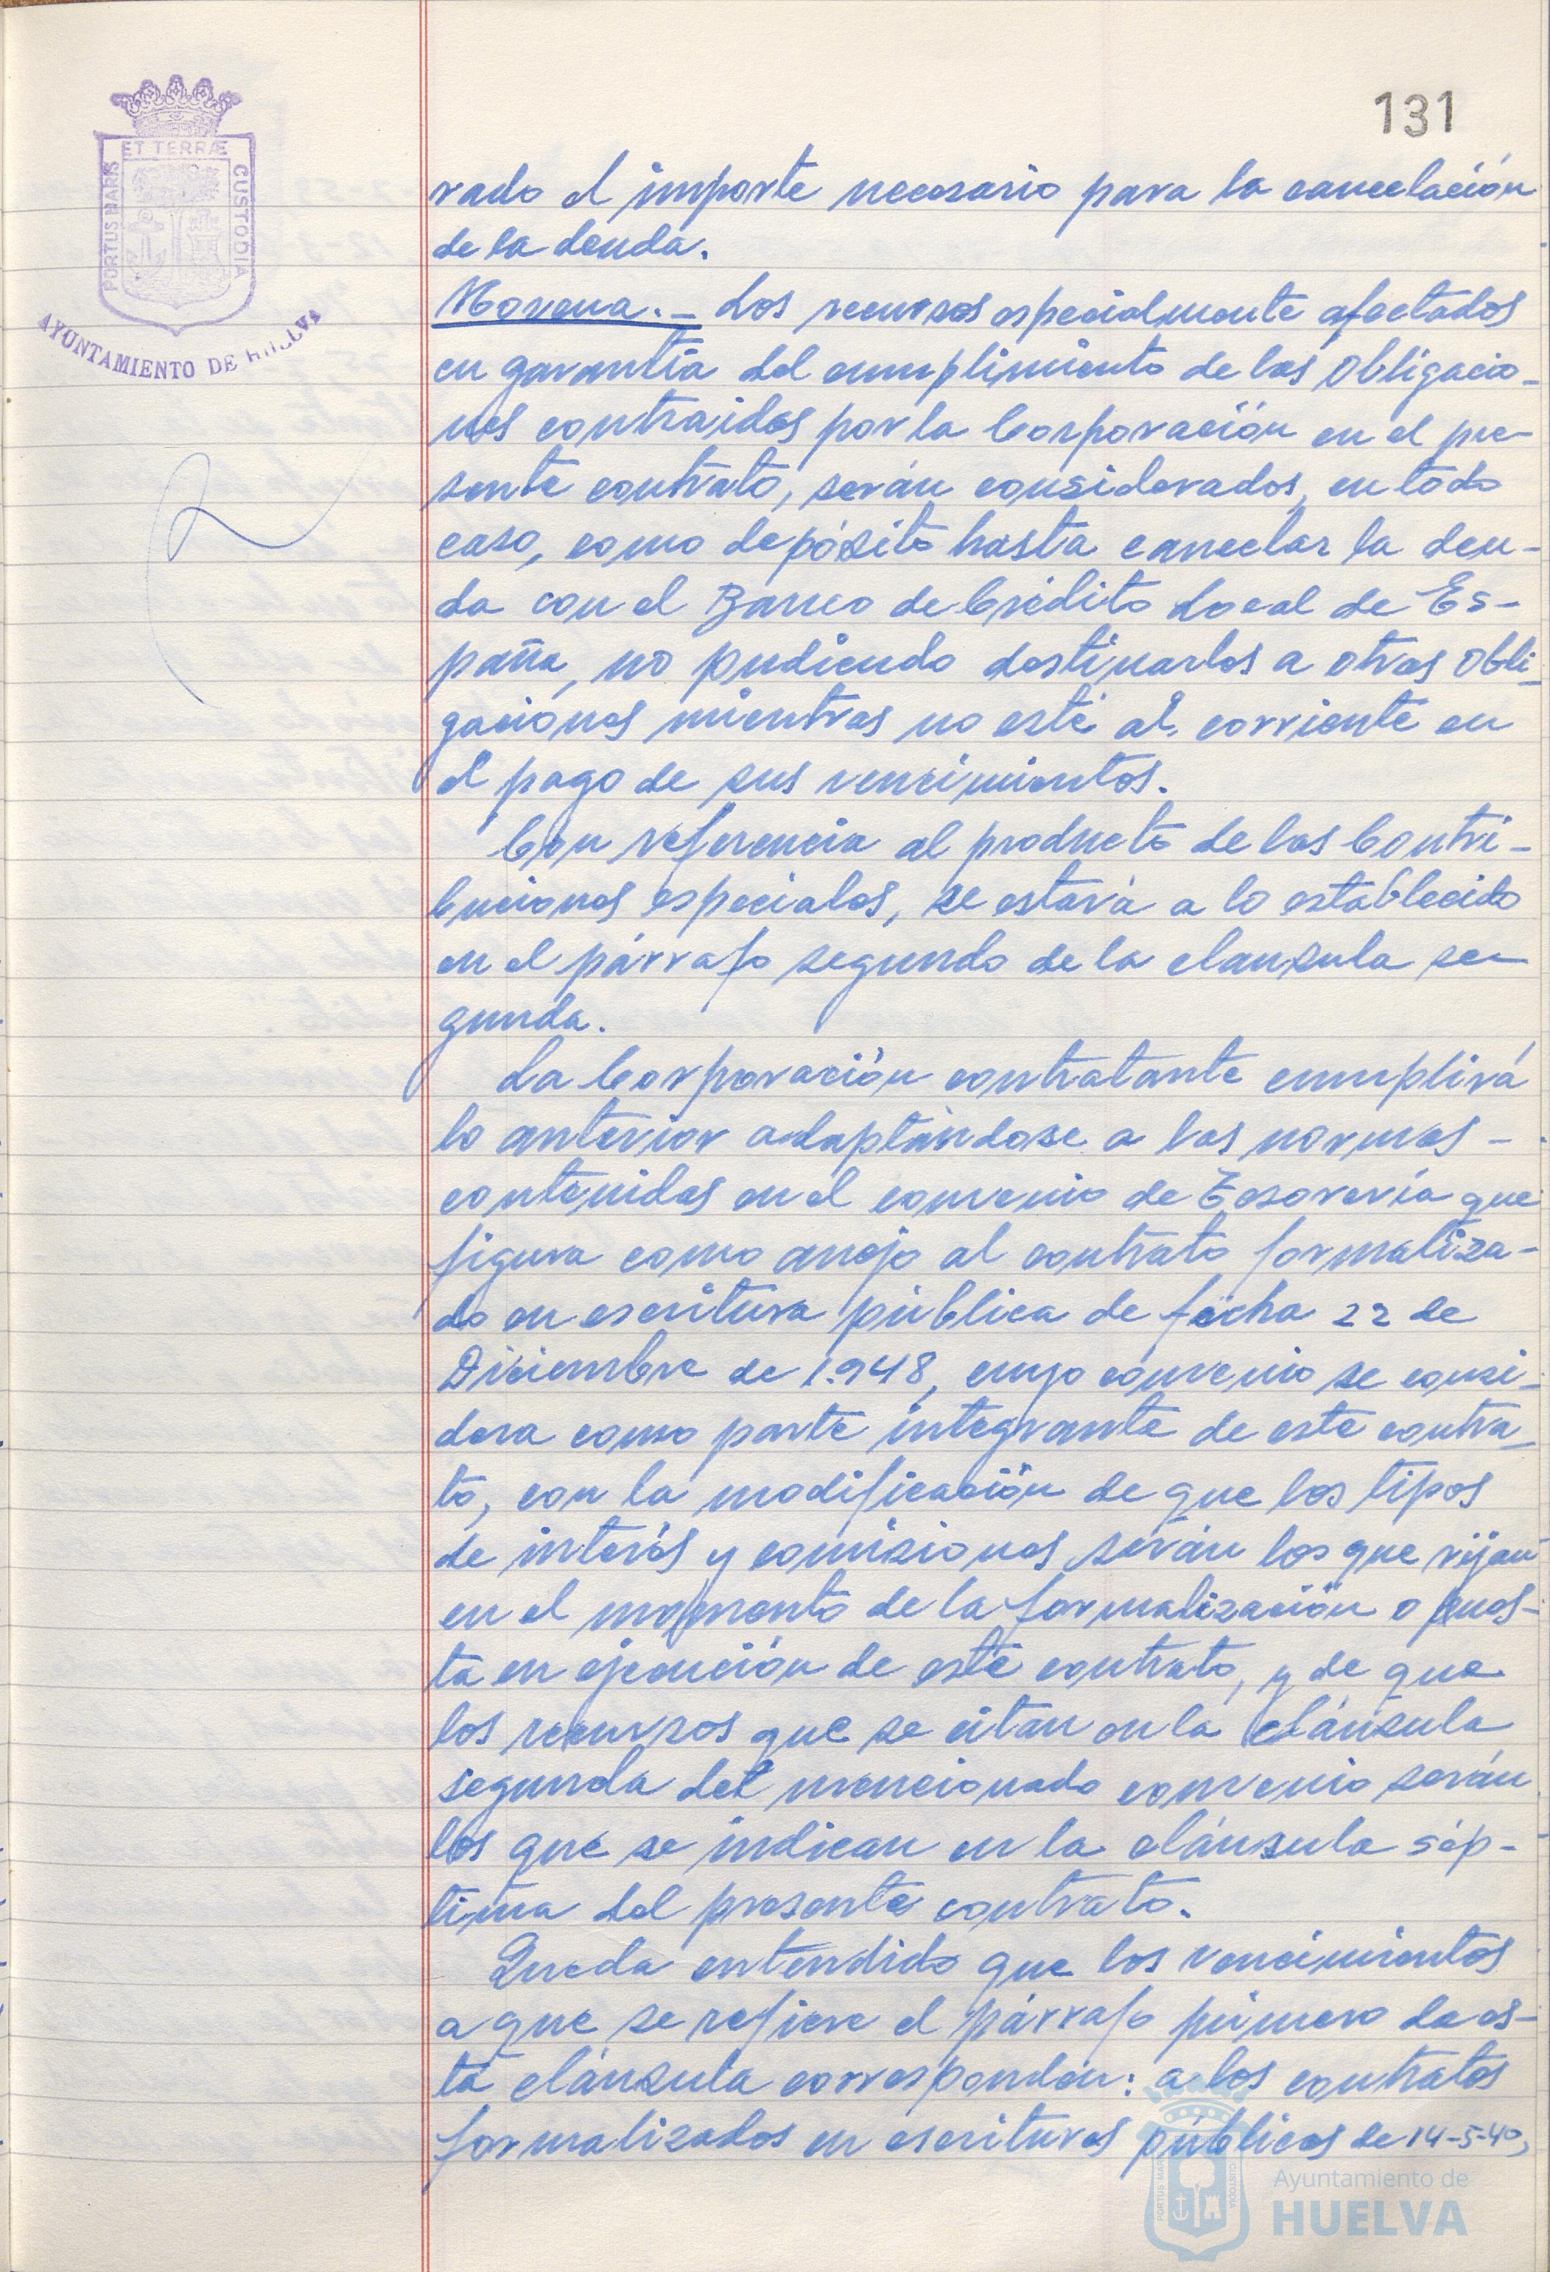 131
ET TERRÆ
PORTUS MARIS
CUSTODIA
AYUNTAMIENTO DE HUELVA
rado el importe necesario para la cancelación
de la deuda.
Novena.- Los recursos especialmente afectados
en garantía del cumplimiento de las obligacio-
nes contraidas por la Corporación en el pre-
sente contrato, serán considerados, en todo
caso, como depósito hasta cancelar la deu-
da con el Banco de Crédito Local de Es-
paña, no pudiendo destinarlos a otras obli-
gaciones mientras no esté al corriente en
el pago de sus vencimientos.
Con referencia al producto de las Contri-
buciones especiales, se estará a lo establecido
en el párrafo segundo de la clausula se-
gunda.
La Corporación contratante cumplirá
lo anterior adaptándose a las normas -
contenidas en el convenio de Tesorería que
figura como anejo al contrato formaliza-
do en escritura pública de fecha 22 de
Diciembre de 1.948, cuyo convenio se consi-
dera como parte integrante de este contra-
to, con la modificación de que los tipos
de interés y comisiones serán los que rijan
en el momento de la formalización o pues-
ta en ejecución de este contrato, y de que
los recursos que se citan en la cláusula
segunda del mencionado convenio serán
los que se indican en la cláusula sép-
tima del presente contrato.
Queda entendido que los vencimientos
a que se refiere el párrafo primero de es-
ta cláusula corresponden: a los contratos
formalizados en escrituras públicas de 14-5-40,
Ayuntamiento de
HUELVA